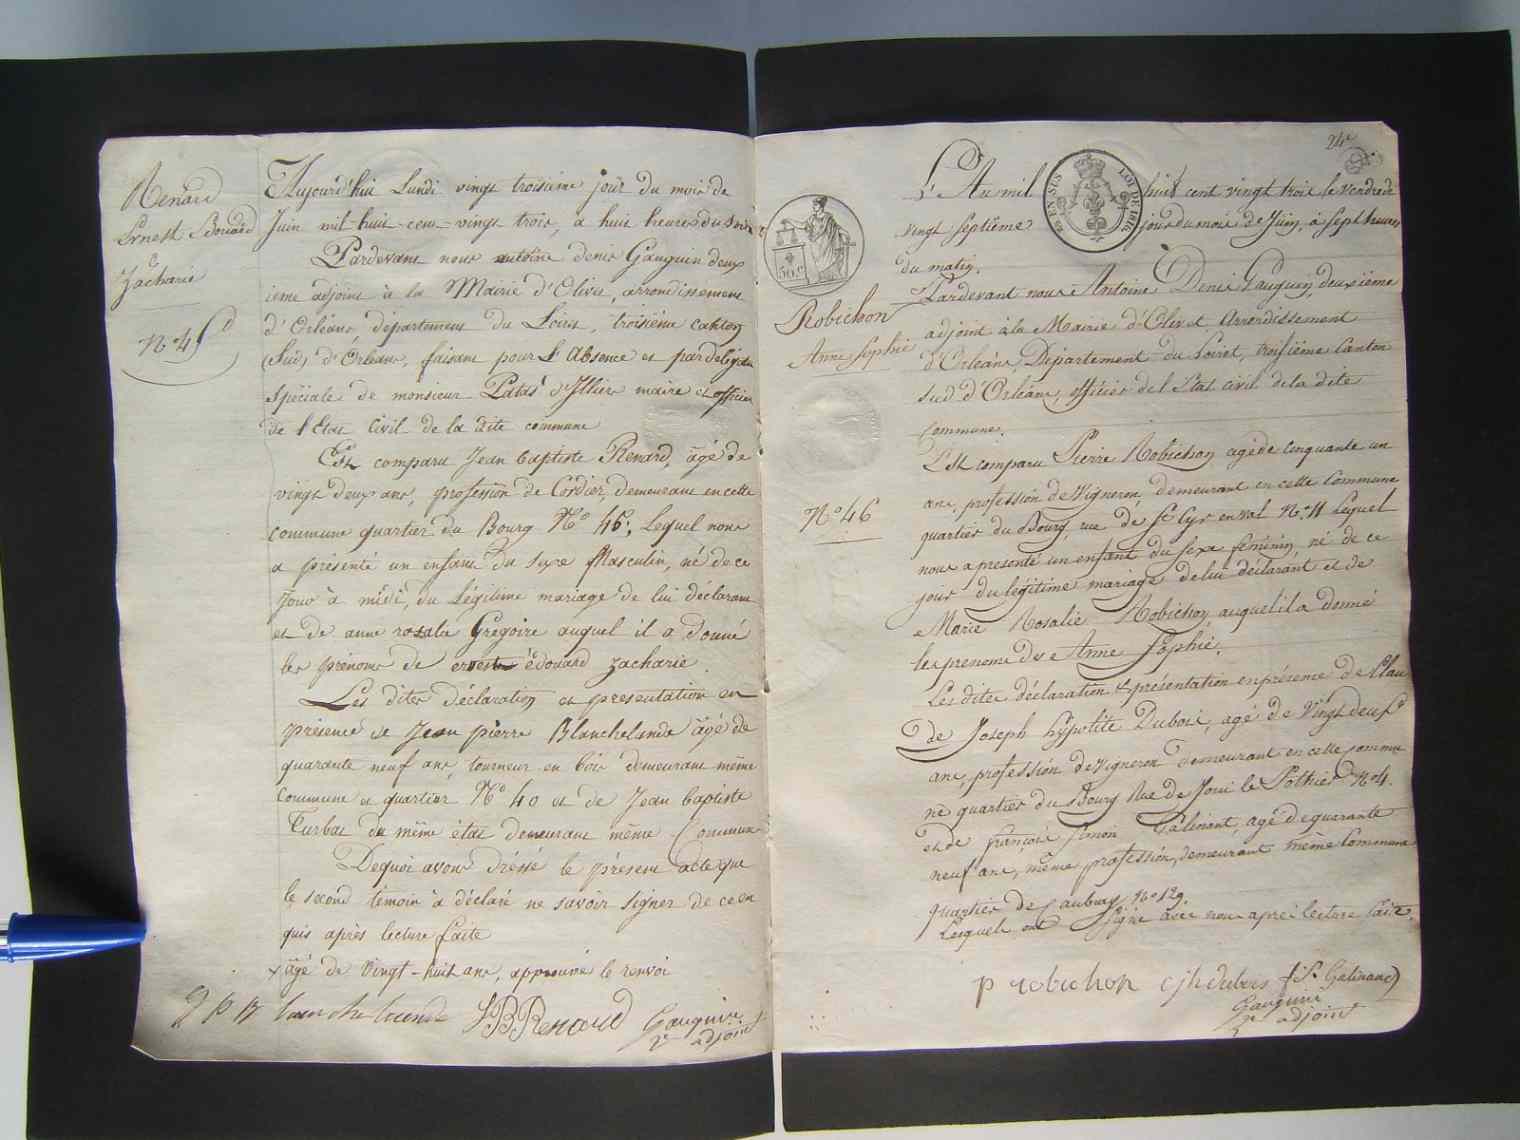 Renard
Ernest Édouard
Zacharie
N° 45
Aujourd'hui Lundi vingt troisième jour du mois de
Juin mil-huit-cent-vingt trois, à huit heures du soir
Pardevant nous antoine denis Gauguin deux
ième adjoint à la Mairie d'Olivet, arrondissement
d'Orléans département du Loiret, troisième canton
(Sud) d'Orléans, faisant pour l'Absence et par délégation
Spéciale de monsieur Patas d'Illiers maire et officier
de l'Etat Civil de la dite commune
Est comparu Jean baptiste Renard, âgé de
vingt deux ans, profession de Cordier, demeurant en cette
commune quartier du Bourg N° 46; Lequel nous
a présenté un enfant du sexe Masculin, né de ce
jour à midi, du Légitime mariage de lui déclarant
et de anne rosalie Gregoire auquel il a donné
les prénoms de ernest édouard zacharie.
Les dites déclaration et présentation en
présence de Jean pierre Blanchelande âgé de
quarante neuf ans, tourneur en bois demeurant même
Commune et quartier N° 40 et de Jean baptiste
Turbat du même état demeurant même Commune
Dequoi avons dréssé le présent acte que
le second témoin à déclaré ne savoir signer de ce en
quis après lecture faite
x âgé de vingt-huit ans, approuvé le renvoi
J P B blanchelande JB Renard Gauguin
2e adjoint
24e
50 c
EN SUS
LOI DE 1816
L'An mil huit cent vingt trois le vendredi
vingt septième jour du mois de Juin, à sept heures
du matin.
Pardevant nous Antoine Denis Gauguin, deuxième
Robichon
Anne Sophie
adjoint à la Mairie d'Olivet Arrondissement
d'Orléans, Département du Loiret, troisième Canton
Sud d'Orléans, officier de l'Etat civil de la dite
Commune.
Est comparu Pierre Robichon agé de cinquante un
N° 46
ans, profession de Vigneron, demeurant en cette Commune
quartier du Bourg, rue de St Cyr en val N° 11 Lequel
nous a presenté un enfant du sexe féminin, né de ce
jour du légitime mariage de lui déclarant et de
Marie Rosalie Robichon, auquel il a donné
les prenoms de Anne Sophie.
Les dites déclaration et présentation en présence de Clau
de Joseph hypolite Dubois, agé de Vingt deux
ans, profession de vigneron demeurant en cette commu
ne quartier du Bourg Rue de Joui le Pothier N° 4.
et de françois simon Galinant, agé de quarante
neuf ans, même profession, demeurant même Commune
quartier de Caubray N° 129.
Lesquels ont signé avec nous après lecture faite.
p robichon cjh dubois f.s. Galinand
Gauguin
2e adjoint